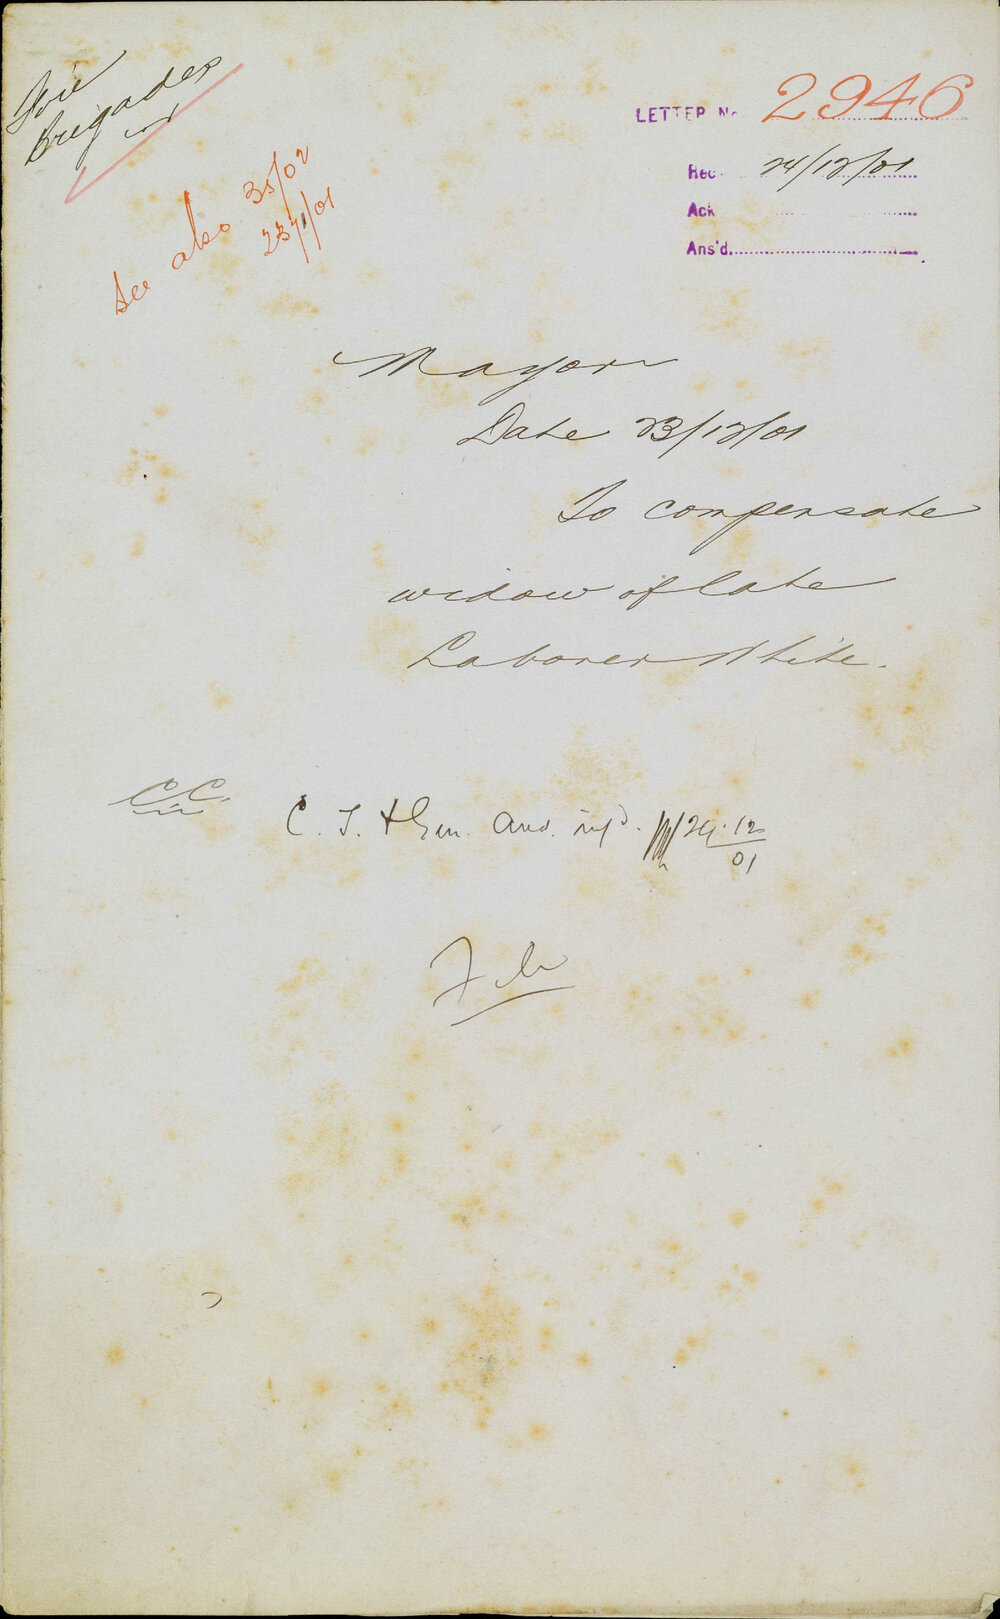 Fire
Brigades
See also 35/02
2371/01
LETTER No 2946
Rec 24/12/01
Ack
Ans'd.
Mayor
Date 23/12/01
To compensate
widow of late
Laborer White.
C.C.
C. T. & Gen. Aud. inf'd. 24.12
01
File